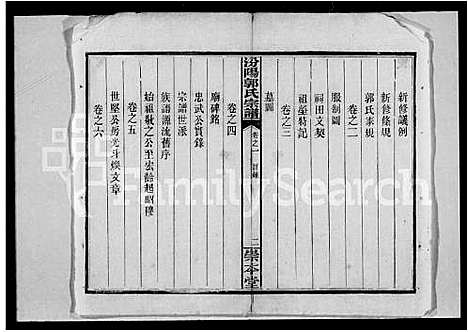 新修議例
新修條規
郭氏家規
卷之二
服制圖
祠田文契
祖塋特記
卷之三
墓圖
汾陽郭氏宗譜
卷之一
目錄
二
崇本堂
卷之四
廟碑銘
忠武公實錄
宗譜世派
族譜源流舊序
卷之五
始祖敬之公至宏齡起昭穆
世堅公房光斗煥文章
卷之六
FamilySearch